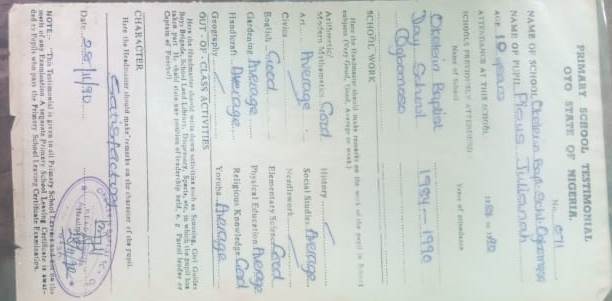 PRIMARY SCHOOL TESTIMONIAL
OYO STATE OF NIGERIA.
No. 071
NAME OF SCHOOL Okelerin Bapt. Schl. Ogbomoso
NAME OF PUPIL Pious Julianah
AGE 10 years
ATTENDANCE AT THIS SCHOOL 1984 to 1990
SCHOOLS PREVIOUSLY ATTENDED
Name of School Years of attendance
Okelerin Baptist
Day School 1984-1990
Ogbomoso
SCHOOL WORK
Here the Headmaster should make remarks on the work of the pupil in school
subjects (Very Good, Good, Average or weak)
Arithmetic/
Modern Mathematics Good History
Art Average Social Studies Average
Civics Needlework
English Good Elementary Science Good
Gardening Average Physical Education Average
Handicraft Average Religious Knowledge Good
Geography Yoruba Average
OUT-OF-CLASS ACTIVITIES
Here the Headmaster should write down activities such as Scouting, Girl Guides
Boys Brigade, School Land Library, Dispensary, Sports, etc. in which the pupil has
taken part. He should state any position of leadership held, e.g. Patrol leader or
Captain of Football)
CHARACTER
Here the Headmaster should make remarks on the character of the pupil.
Satisfactory
Date 28/11/90
Headmaster
NOTE: "This Testimonial is given to all Primary School Leavers and not on the
results of any Examination. A separate Primary School Leaving Certificate is awar-
ded to Pupils who pass the Primary School Leaving Certificate Examination.